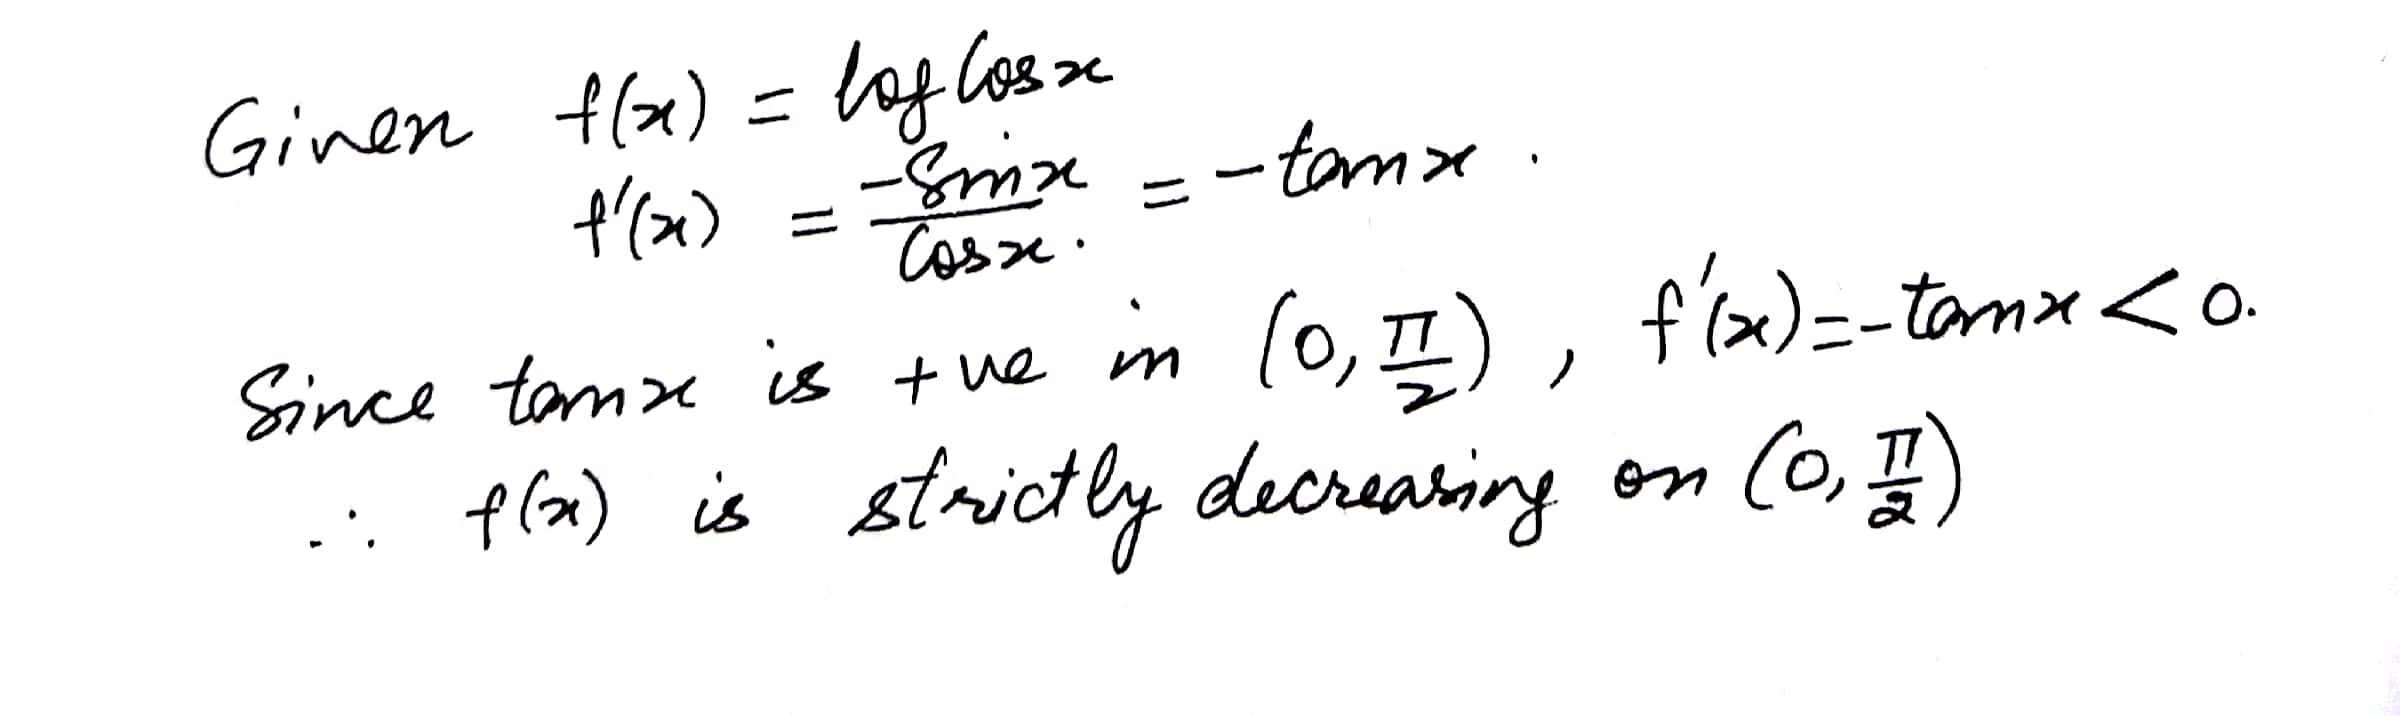 Given f(x) = log Cos x
f'(x) = -Sin x / Cos x. = - tan x.
Since tan x is +ve in (0, π/2), f'(x) = - tan x < 0.
∴ f(x) is strictly decreasing on (0, π/2)